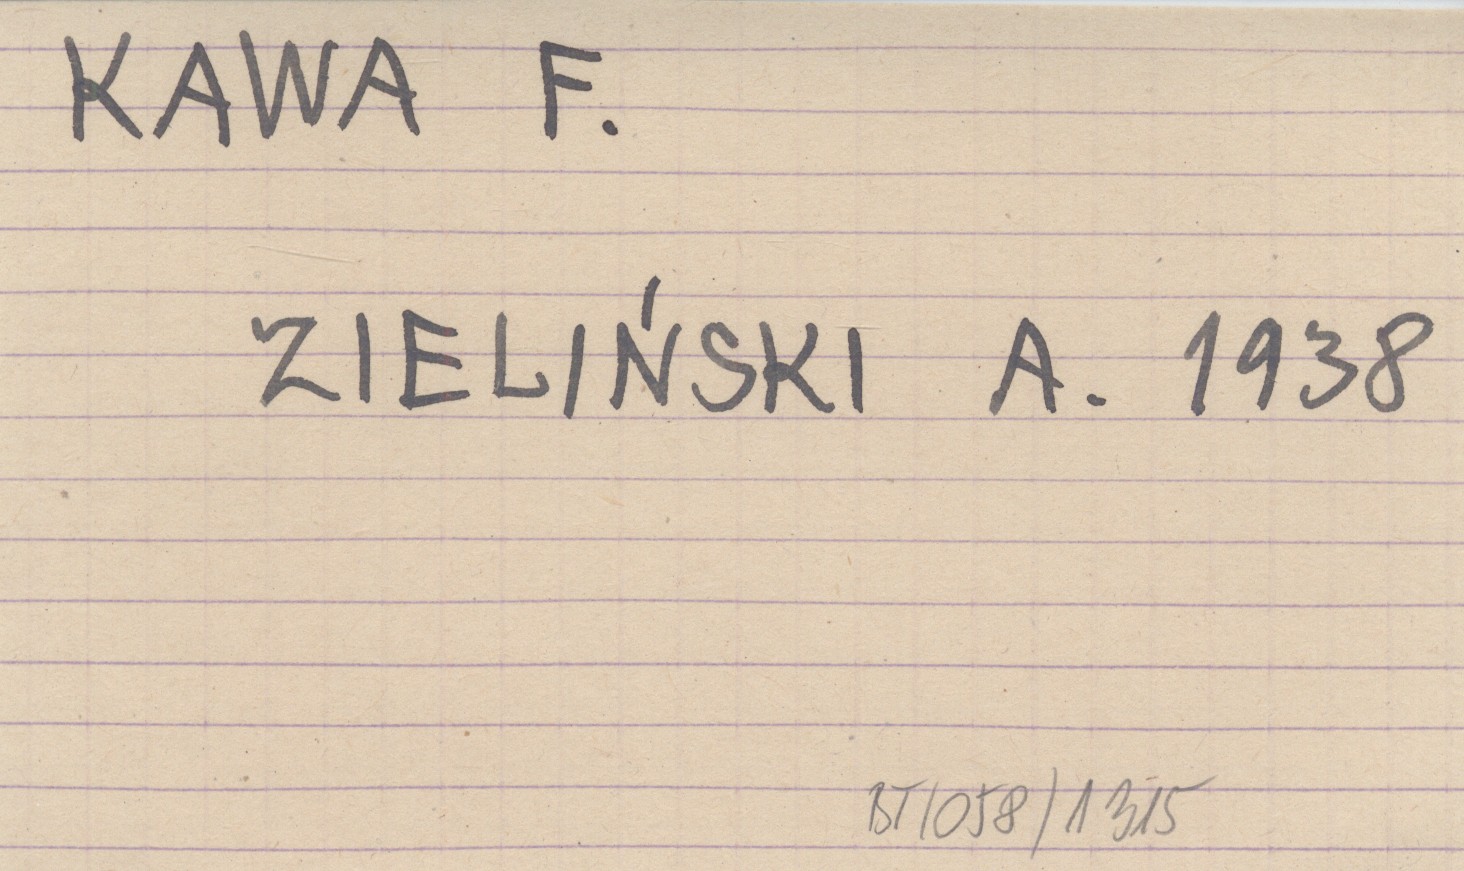 KAWA F.
ZIELIŃSKI A. 1938
BT/058/1315